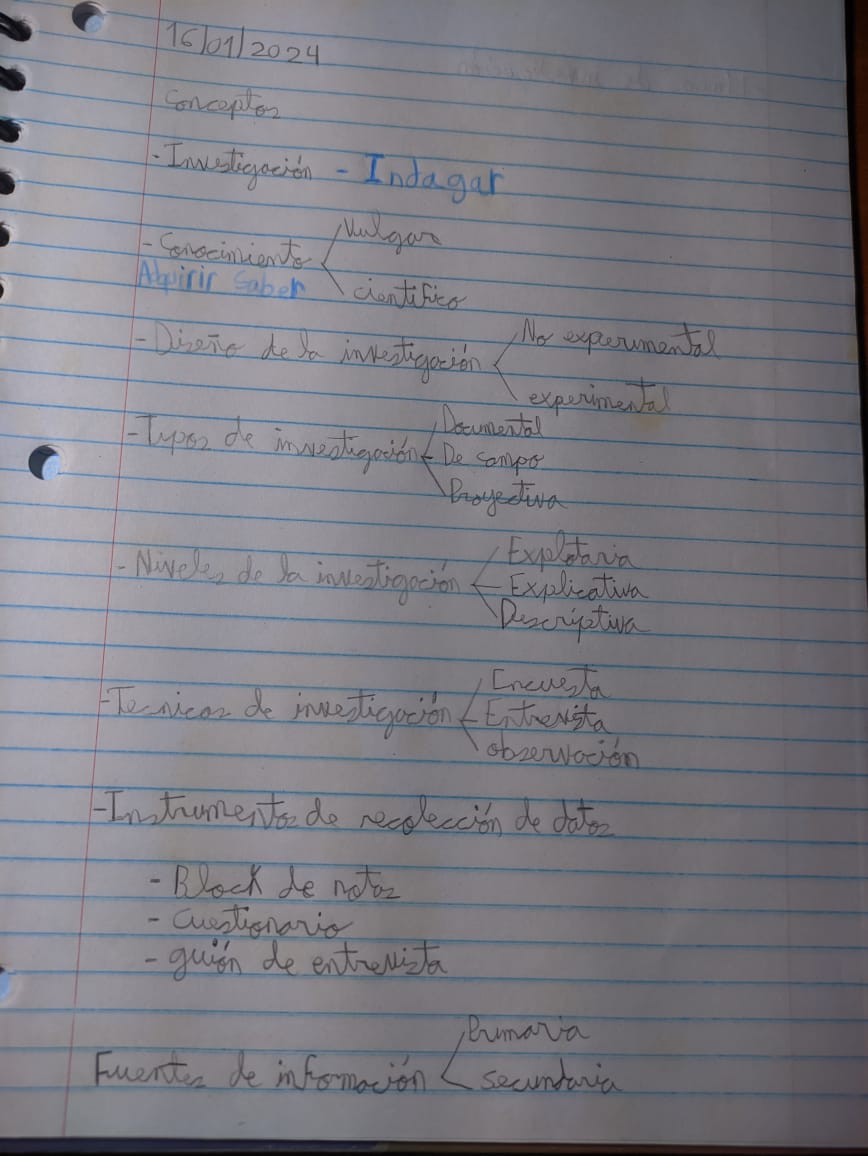 16/01/2024
Conceptos
- Investigación - Indagar
Vulgar
- Conocimiento
Adquirir saber
científico
- Diseño de la investigación
No experimental
experimental
- Tipos de investigación
Documental
De campo
Proyectiva
- Niveles de la investigación
Explotaria
Explicativa
Descriptiva
- Tecnicas de investigación
Encuesta
Entrevista
observación
- Instrumentos de recolección de datos
- Block de notas
- Cuestionario
- guión de entrevista
Primaria
Fuentes de información
secundaria